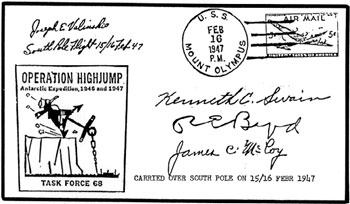 Joseph E Valinski
South Pole Flight 15/16 Feb 47
U. S. S.
MOUNT OLYMPUS
FEB
16
1947
P.M.
AIR MAIL
5¢
OPERATION HIGHJUMP
Antarctic Expedition, 1946 and 1947
TASK FORCE 68
Kenneth C. Swain
R E Byrd
James C. McCoy
CARRIED OVER SOUTH POLE ON 15/16 FEBR 1947